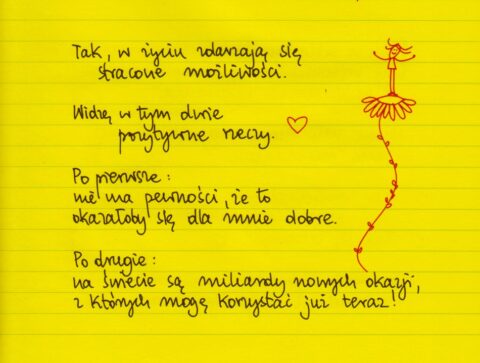 Tak, w życiu zdarzają się
stracone możliwości.
Widzę w tym dwie
pozytywne rzeczy.
Po pierwsze:
nie ma pewności, że to
okazałoby się dla mnie dobre.
Po drugie:
na świecie są miliardy nowych okazji,
z których mogę korzystać już teraz!